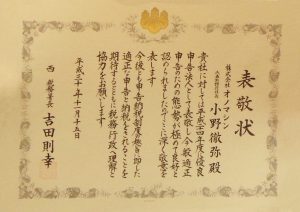 表敬状
株式会社 オノマシン
代表取締役 小野徹弥殿
貴社に対しては平成二十四年度優良
申告法人として表敬し今般適正
申告のための態勢が極めて良好と
認められましたのでここに深く敬意を
表します
今後とも申告納税制度の趣旨に即した
適正な申告と納税をされることを
期待するとともに税務行政へ理解と
協力をお願いします
平成三十年十一月十五日
西 税務署長
吉田則幸